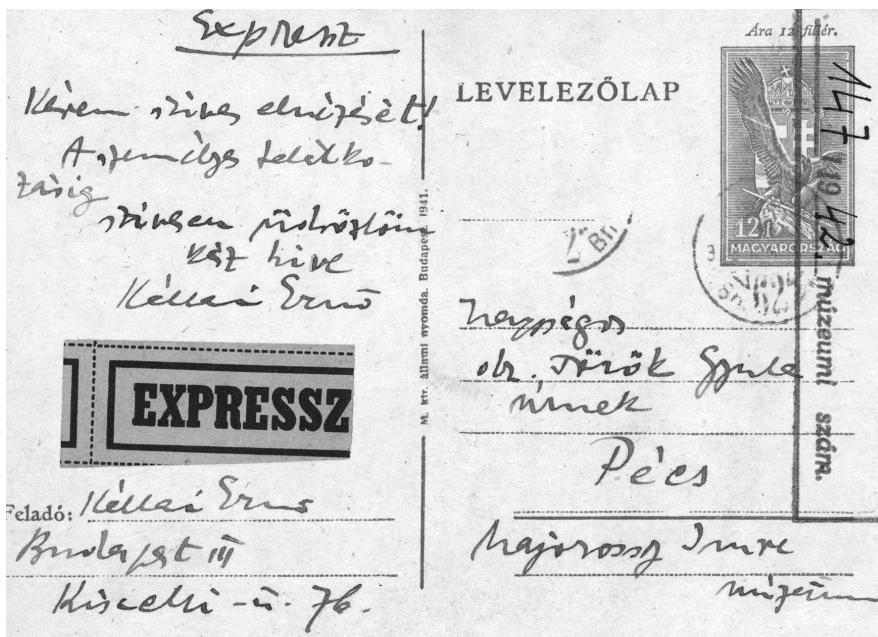 Expressz
Kérem szíves elnézését!
A személyes találko-
zásig
szívesen üdvözlöm
kész híve
Kállai Ernő
EXPRESSZ
Feladó: Kállai Ernő
Budapest III
Kiscelli-ú. 76.
M. kir. állami nyomda. Budapest, 1941.
Ára 12 fillér.
LEVELEZŐLAP
12 f
MAGYARORSZÁG
147
1942. múzeumi száma.
Nagyságos
Török Gyula
úrnak
Pécs
Majorossy Imre
múzeum